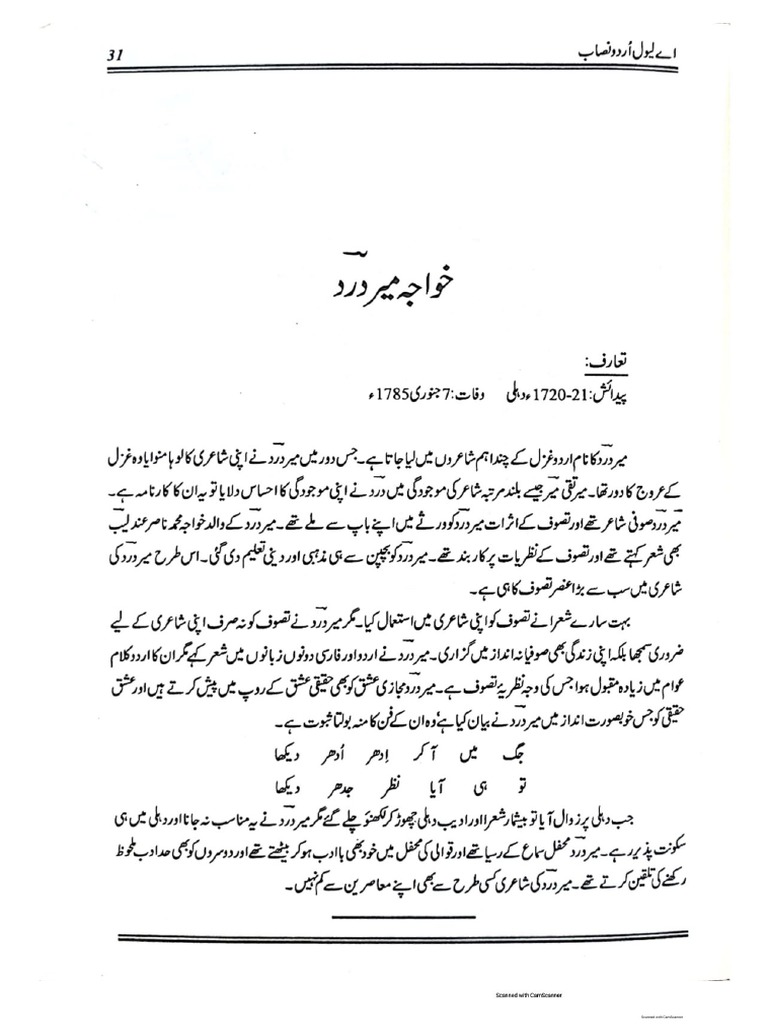 اے لیول اُردو نصاب
31
خواجہ میر دردؔ
تعارف:
پیدائش: 21-1720ء دہلی وفات: 7 جنوری 1785ء
میر دردؔ کا نام اردو غزل کے چند اہم شاعروں میں لیا جاتا ہے۔ جس دور میں میر دردؔ نے اپنی شاعری کا لوہا منوایا وہ غزل
کے عروج کا دور تھا۔ میر تقی میرؔ جیسے بلند مرتبہ شاعر کی موجودگی میں دردؔ نے اپنی موجودگی کا احساس دلایا تو یہ ان کا کارنامہ ہے۔
میر دردؔ صوفی شاعر تھے اور تصوف کے اثرات میر دردؔ کو ورثے میں اپنے باپ سے ملے تھے۔ میر دردؔ کے والد خواجہ محمد ناصر عندلیبؔ
بھی شعر کہتے تھے اور تصوف کے نظریات پر کاربند تھے۔ میر دردؔ کو بچپن سے ہی مذہبی اور دینی تعلیم دی گئی۔ اس طرح میر دردؔ کی
شاعری میں سب سے بڑا عنصر تصوف کا ہی ہے۔
بہت سارے شعرا نے تصوف کو اپنی شاعری میں استعمال کیا۔ مگر میر دردؔ نے تصوف کو نہ صرف اپنی شاعری کے لیے
ضروری سمجھا بلکہ اپنی زندگی بھی صوفیانہ انداز میں گزاری۔ میر دردؔ نے اردو اور فارسی دونوں زبانوں میں شعر کہے مگر ان کا اردو کلام
عوام میں زیادہ مقبول ہوا جس کی وجہ نظریۂ تصوف ہے۔ میر دردؔ مجازی عشق کو بھی حقیقی عشق کے روپ میں پیش کرتے ہیں اور عشق
حقیقی کو جس خوبصورت انداز میں میر دردؔ نے بیان کیا ہے‘ وہ ان کے فن کا منہ بولتا ثبوت ہے۔
جگ میں آ کر اِدھر اُدھر دیکھا
تو ہی آیا نظر جدھر دیکھا
جب دہلی پر زوال آیا تو بیشتار شعرا اور ادیب دہلی چھوڑ کر لکھنؤ چلے گئے مگر میر دردؔ نے یہ مناسب نہ جانا اور دہلی میں ہی
سکونت پذیر رہے۔ میر دردؔ محفل سماع کے رسیا تھے اور قوالی کی محفل میں خود بھی باادب ہو کر بیٹھتے تھے اور دوسروں کو بھی حد ادب ملحوظ
رکھنے کی تلقین کرتے تھے۔ میر دردؔ کی شاعری کسی طرح سے بھی اپنے معاصرین سے کم نہیں۔
Scanned with CamScanner
Scanned with CamScanner